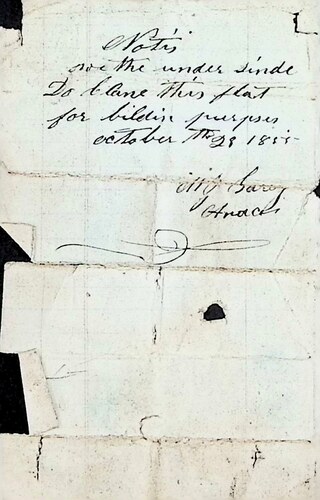 Notis
we the under sinde
Do clame this flat
for bildin purpses
october the 29 1855